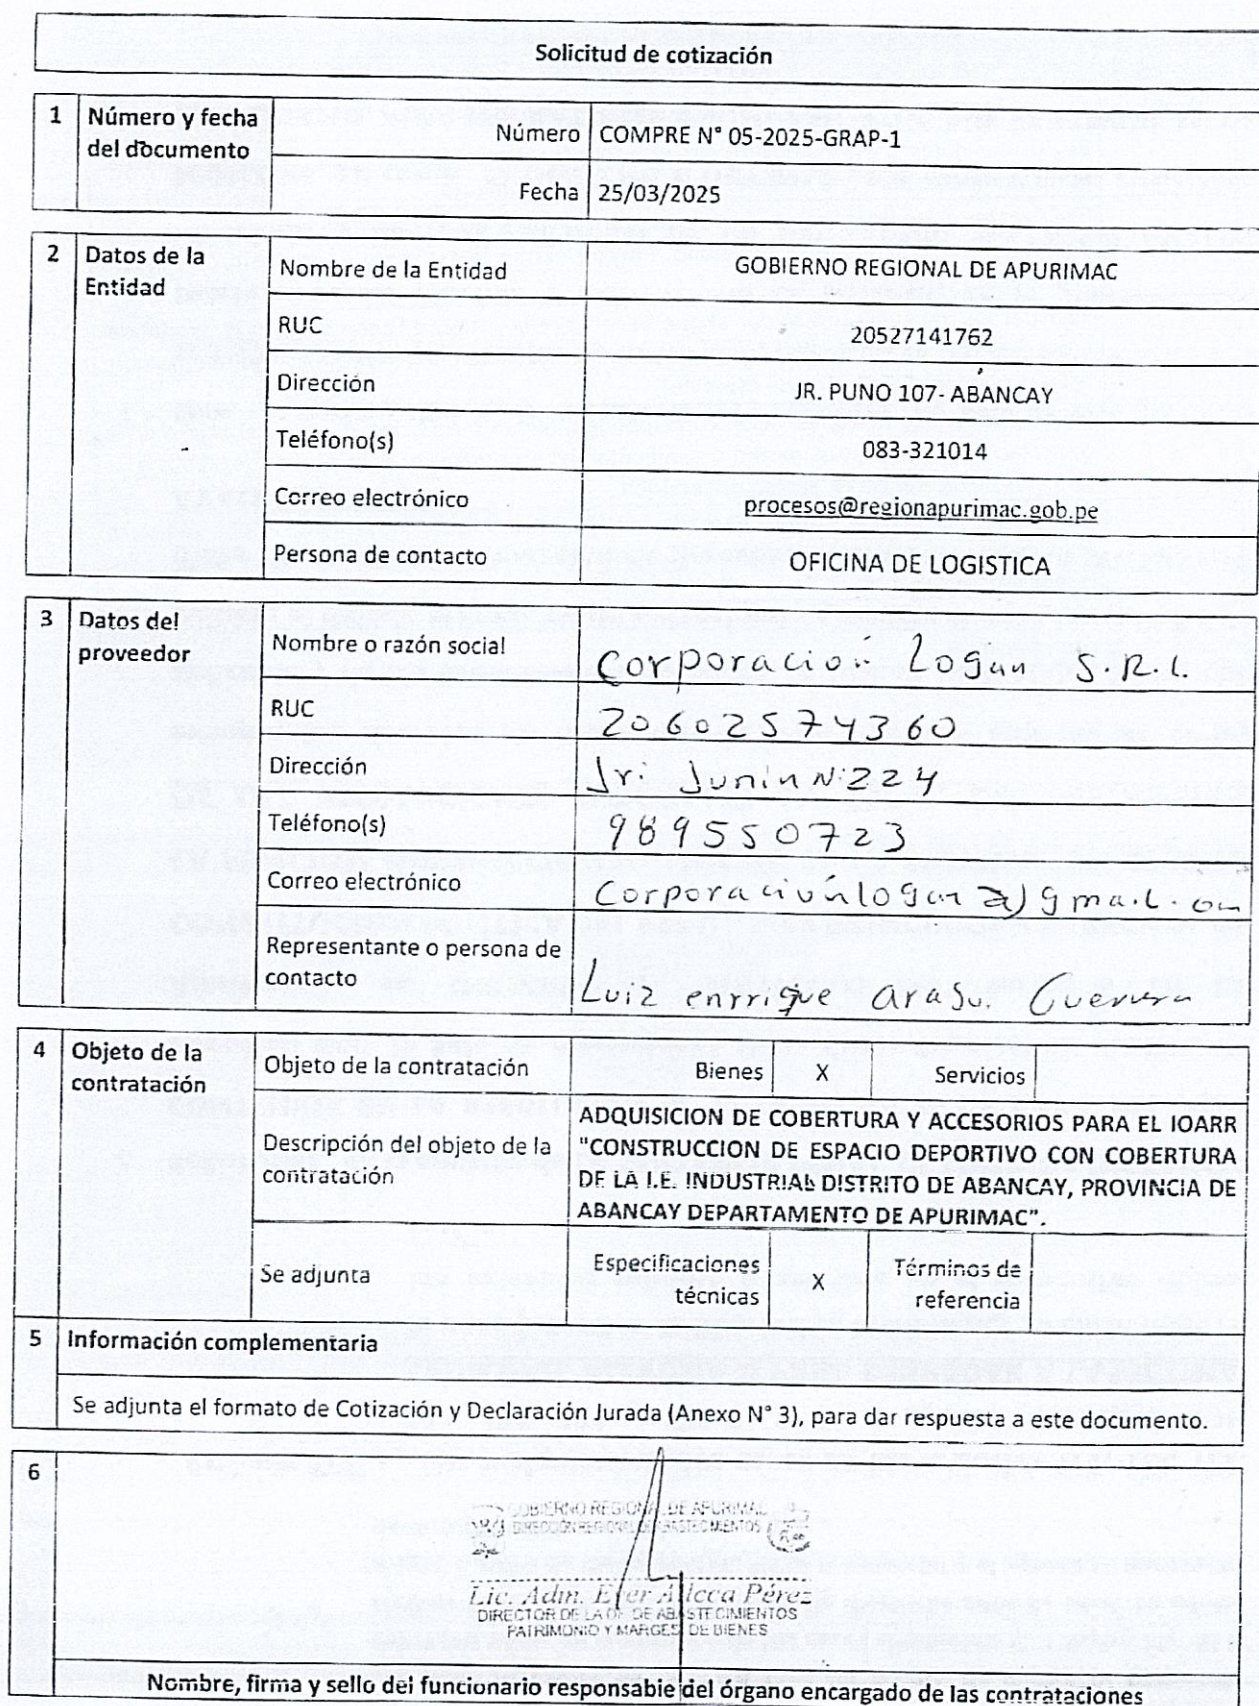 Solicitud de cotización
1 Número y fecha del documento
Número COMPRE N° 05-2025-GRAP-1
Fecha 25/03/2025
2 Datos de la Entidad
Nombre de la Entidad GOBIERNO REGIONAL DE APURIMAC
RUC 20527141762
Dirección JR. PUNO 107- ABANCAY
Teléfono(s) 083-321014
Correo electrónico procesos@regionapurimac.gob.pe
Persona de contacto OFICINA DE LOGISTICA
3 Datos del proveedor
Nombre o razón social Corporación Logan S.R.L.
RUC 20602574360
Dirección Jr. Junin N: 224
Teléfono(s) 989550723
Correo electrónico
Representante o persona de contacto
Luiz enrrique
4 Objeto de la contratación
Objeto de la contratación Bienes X Servicios
Descripción del objeto de la contratación
ADQUISICION DE COBERTURA Y ACCESORIOS PARA EL IOARR
"CONSTRUCCION DE ESPACIO DEPORTIVO CON COBERTURA
DE LA I.E. INDUSTRIAL DISTRITO DE ABANCAY, PROVINCIA DE
ABANCAY DEPARTAMENTO DE APURIMAC".
Se adjunta Especificaciones técnicas X Términos de referencia
5 Información complementaria
Se adjunta el formato de Cotización y Declaración Jurada (Anexo N° 3), para dar respuesta a este documento.
6
GOBIERNO REGIONAL DE APURIMAC
DIRECCIÓN REGIONAL DE ABASTECIMIENTOS
Lic. Adm. Pérez
DIRECTOR DE LA OF. DE ABASTECIMIENTOS
PATRIMONIO Y MARGES DE BIENES
Nombre, firma y sello del funcionario responsable del órgano encargado de las contrataciones